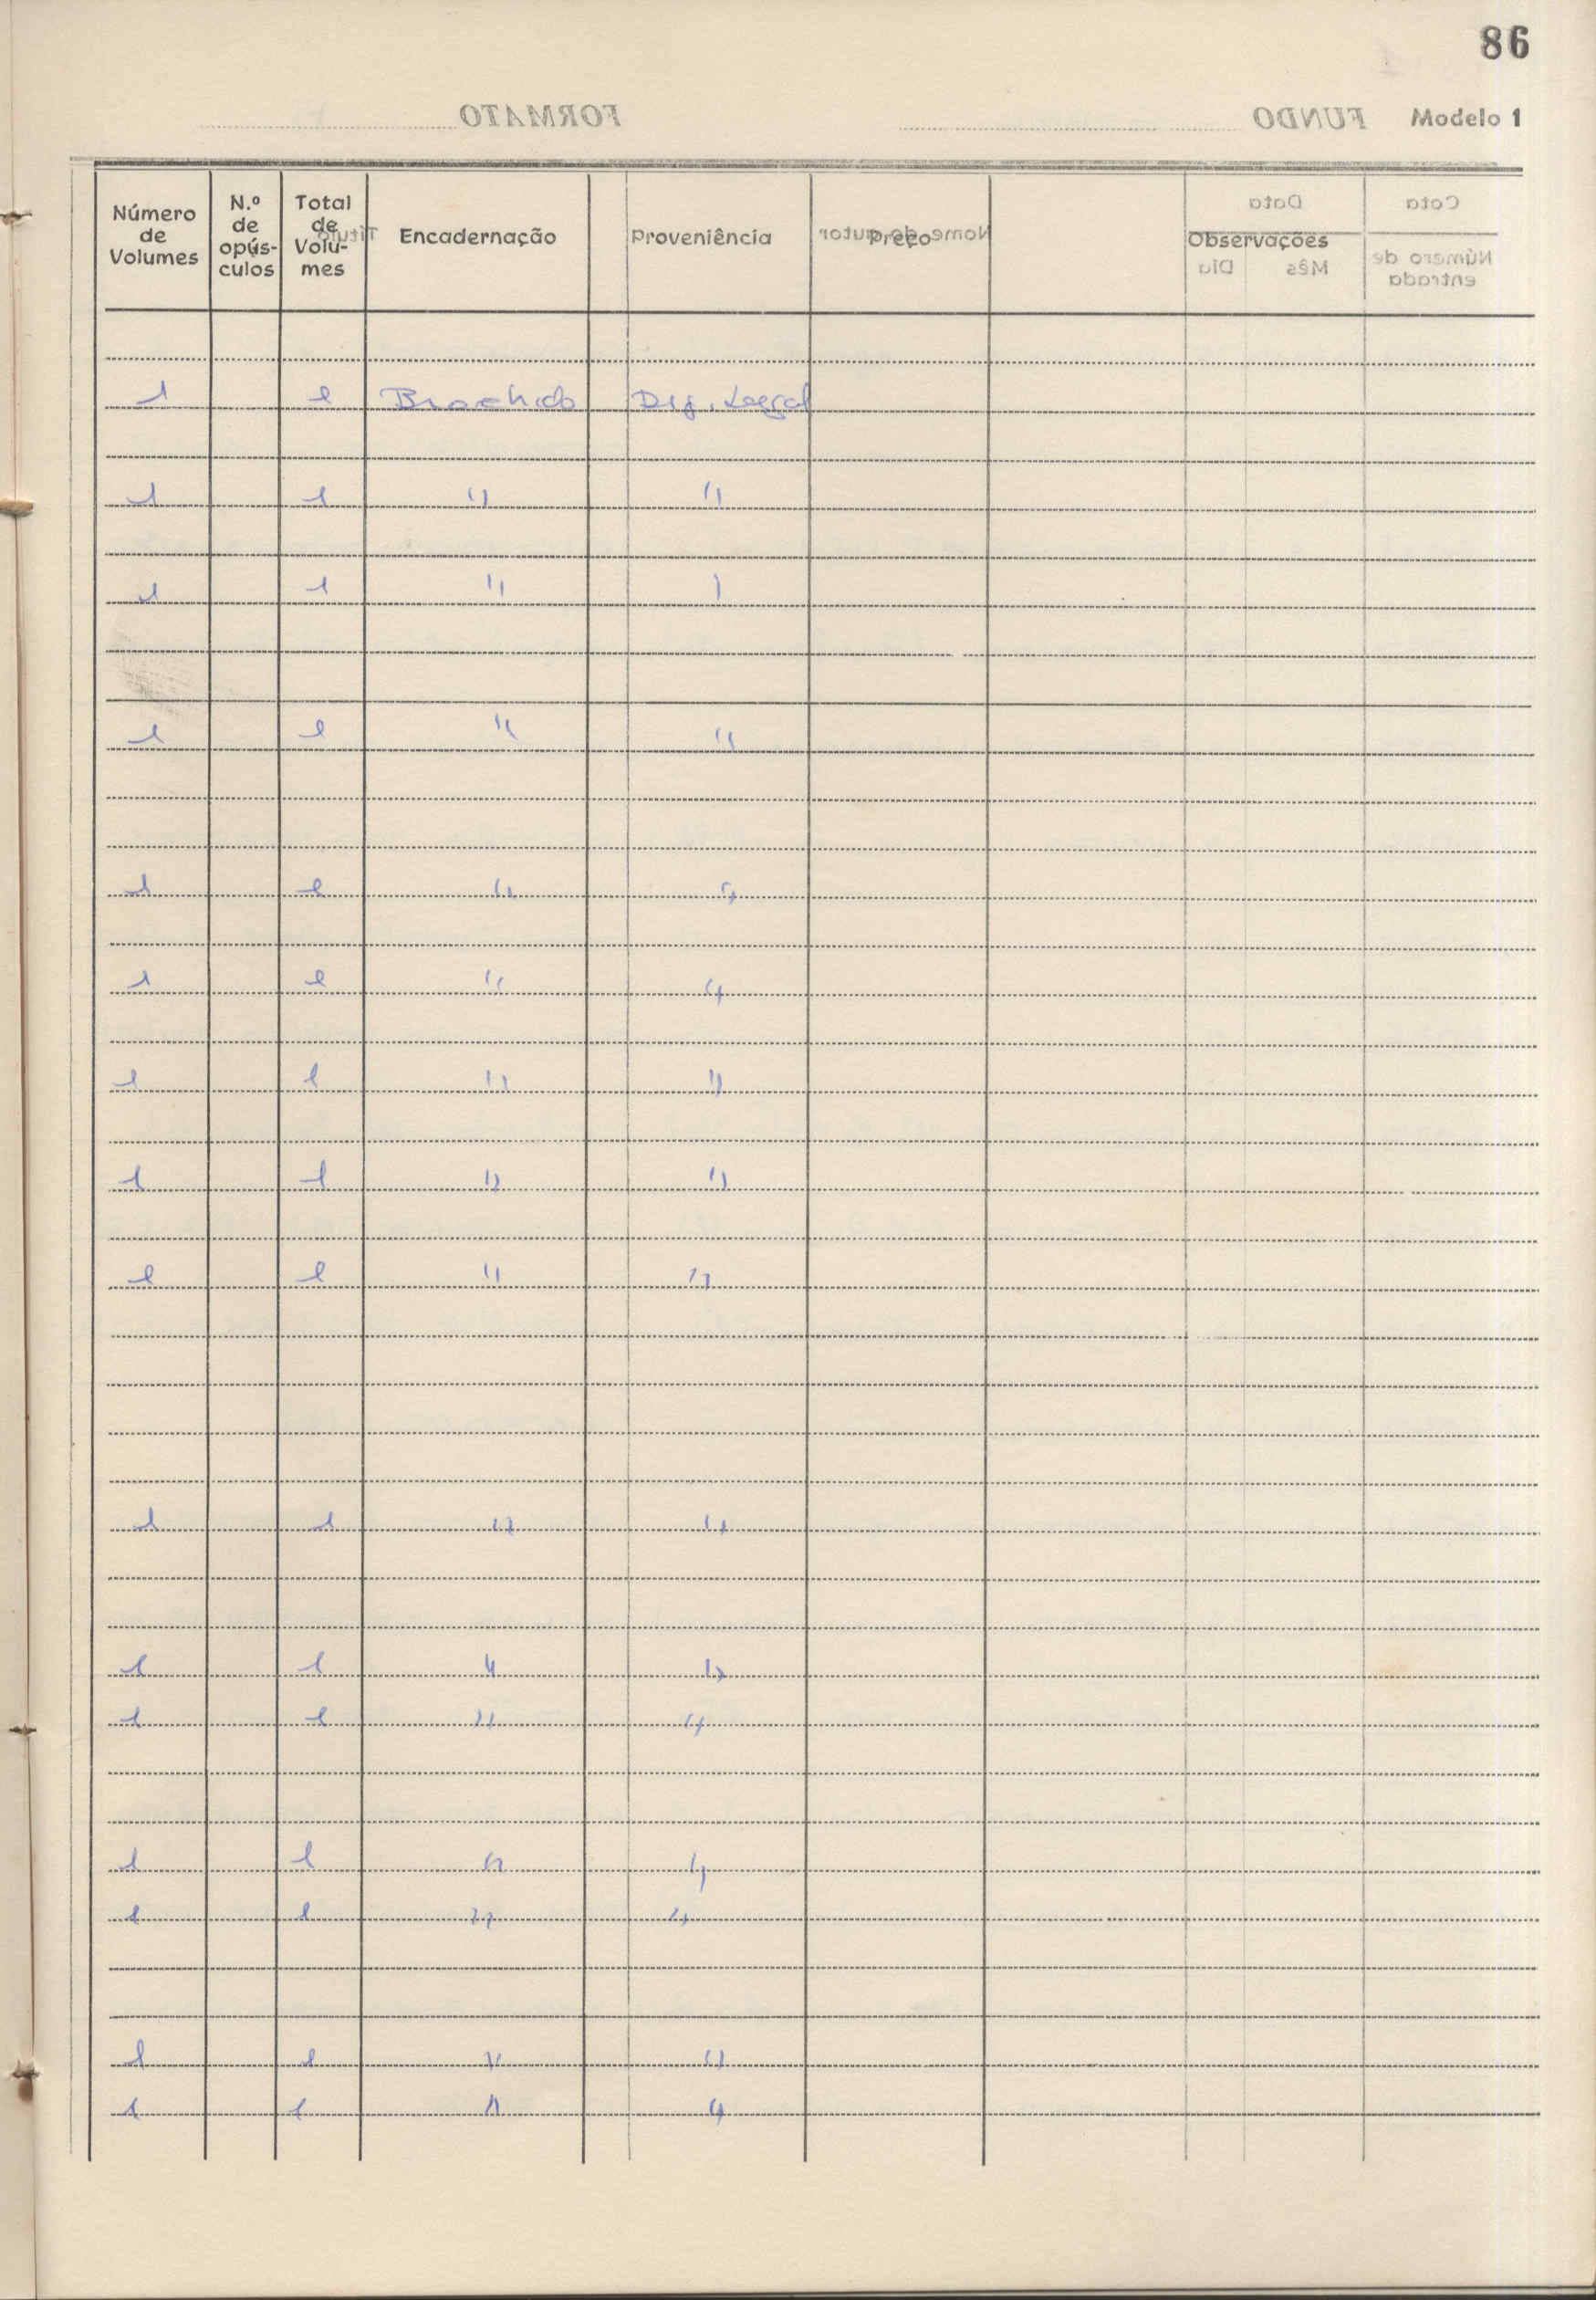 86
Modelo 1
Número de Volumes | N.º de opús-culos | Total de Volu-mes | Encadernação | Proveniência | Preço | Observações
1 | 1 | Brochido | Dep. Legal
1 | 1 | " | "
1 | 1 | " | "
1 | 1 | " | "
1 | 1 | " | "
1 | 1 | " | "
1 | 1 | " | "
1 | 1 | " | "
1 | 1 | " | "
1 | 1 | " | "
1 | 1 | " | "
1 | 1 | " | "
1 | 1 | " | "
1 | 1 | " | "
1 | 1 | " | "
1 | 1 | " | "